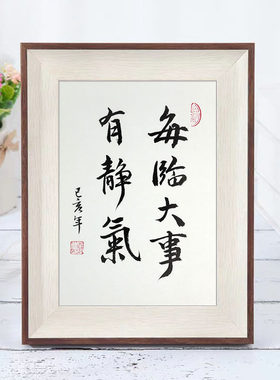 每临大事
有静氣
己亥年